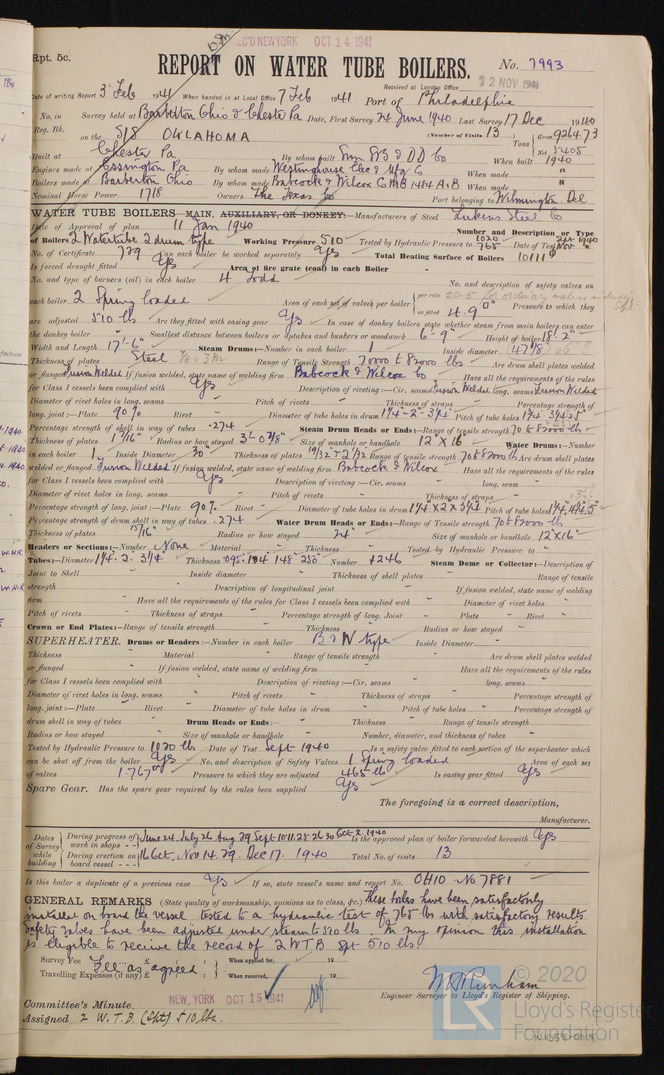 Rpt. 5c.
REC'D NEW YORK OCT 14 1941
REPORT ON WATER TUBE BOILERS.
No. 7993
Received at London Office 12 NOV 1941
Date of writing Report 3 Feb 1941 When handed in at Local Office 7 Feb 1941 Port of Philadelphia
No. in Survey held at Barberton Ohio & Chester Pa Date, First Survey 24 June 1940 Last Survey 17 Dec 1940
Reg. Bk. (Number of Visits 13)
on the S/S OKLAHOMA Tons Gross 9264.73
Net 5405
Built at Chester Pa By whom built Sun SB & DD Co When built 1940
Engines made at Essington Pa By whom made Westinghouse Elec & Mfg Co When made "
Boilers made at Barberton Ohio By whom made Babcock & Wilcox Co When made "
Nominal Horse Power 1718 Owners The Texas Co Port belonging to Wilmington Del
WATER TUBE BOILERS MAIN, AUXILIARY, OR DONKEY:—Manufacturers of Steel Lukens Steel Co
Date of Approval of plan 11 Jan 1940 Number and Description or Type
of Boilers 2 Watertube 2 drum type Working Pressure 510 Tested by Hydraulic Pressure to 1020 765 Date of Test
No. of Certificate 729 Can each boiler be worked separately Yes Total Heating Surface of Boilers 10111
Is forced draught fitted Yes Area of fire grate (coal) in each Boiler
No. and type of burners (oil) in each boiler 4 Todd No. and description of safety valves on
each boiler 2 Spring loaded Area of each set of valves per boiler per rule as fitted 4.9 Pressure to which they
are adjusted 510 lbs Are they fitted with easing gear Yes In case of donkey boilers state whether steam from main boilers can enter
the donkey boiler Smallest distance between boilers or uptakes and bunkers or woodwork 6'-9" Height of boiler 18'-2"
Width and Length 17'-6" Steam Drums:—Number in each boiler 1 Inside diameter 47 1/8
Thickness of plates Range of Tensile Strength 70000 to 82000 lbs Are drum shell plates welded
or flanged Fusion Welded If fusion welded, state name of welding firm Babcock & Wilcox Co Have all the requirements of the rules
for Class I vessels been complied with Yes Description of riveting:—Cir. seams Fusion Welded long. seams Fusion Welded
Diameter of rivet holes in long. seams Pitch of rivets Thickness of straps Percentage strength of
long. joint:—Plate 90% Rivet Diameter of tube holes in drum 1 1/4-2-3 1/4 Pitch of tube holes
Percentage strength of shell in way of tubes .274 Steam Drum Heads or Ends:—Range of tensile strength 70 to 82000 lbs
Thickness of plates 1 3/16" Radius or how stayed 3'-0 7/8" Size of manhole or handhole 12" X 16 Water Drums:—Number
in each boiler 1 Inside Diameter 30" Thickness of plates Range of tensile strength 70 to 82000 lbs Are drum shell plates
welded or flanged Fusion Welded If fusion welded, state name of welding firm Babcock & Wilcox Have all the requirements of the rules
for Class I vessels been complied with Yes Description of riveting:—Cir. seams long. seam
Diameter of rivet holes in long. seams Pitch of rivets Thickness of straps
Percentage strength of long. joint:—Plate 90% Rivet Diameter of tube holes in drum 1 1/4 X 2 X 3 1/4 Pitch of tube holes
Percentage strength of drum shell in way of tubes .274 Water Drum Heads or Ends:—Range of Tensile strength 70 to 82000 lbs
Thickness of plates 15/16" Radius or how stayed 24" Size of manhole or handhole 12 X 16"
Headers or Sections:—Number None Material Thickness Tested by Hydraulic Pressure to
Tubes:—Diameter 1 1/4. 2. 3 1/4 Thickness .095 .134 .148 .250 Number 1246 Steam Dome or Collector:—Description of
Joint to Shell Inside diameter Thickness of shell plates Range of tensile
strength Description of longitudinal joint If fusion welded, state name of welding
firm Have all the requirements of the rules for Class I vessels been complied with Diameter of rivet holes
Pitch of rivets Thickness of straps Percentage strength of long. Joint Plate Rivet
Crown or End Plates:—Range of tensile strength Thickness Radius or how stayed
SUPERHEATER. Drums or Headers:—Number in each boiler B & W type Inside Diameter
Thickness Material Range of tensile strength Are drum shell plates welded
or flanged If fusion welded, state name of welding firm Have all the requirements of the rules
for Class I vessels been complied with Description of riveting:—Cir. seams long. seams
Diameter of rivet holes in long. seams Pitch of rivets Thickness of straps Percentage strength of
long. joint:—Plate Rivet Diameter of tube holes in drum Pitch of tube holes Percentage strength of
drum shell in way of tubes Drum Heads or Ends:— Thickness Range of tensile strength
Radius or how stayed Size of manhole or handhole Number, diameter, and thickness of tubes
Tested by Hydraulic Pressure to 1020 lbs Date of Test Sept 1940 Is a safety valve fitted to each section of the superheater which
can be shut off from the boiler Yes No. and description of Safety Valves 1 Spring loaded Area of each set
of valves 1.767 Pressure to which they are adjusted 465 lb Is easing gear fitted Yes
Spare Gear. Has the spare gear required by the rules been supplied Yes
The foregoing is a correct description,
Manufacturer.
Dates of Survey while building
During progress of work in shops June 24. July 26 Aug 29 Sept 10.11.25.26.30 Oct. 2. 1940 Is the approved plan of boiler forwarded herewith Yes
During erection on board vessel 16 Oct. Nov 14. 29. Dec 17. 1940 Total No. of visits 13
Is this boiler a duplicate of a previous case Yes If so, state vessel's name and report No. OHIO No 7881
GENERAL REMARKS (State quality of workmanship, opinions as to class, &c.) These boilers have been satisfactorily
installed on board the vessel tested to a hydraulic test of 765 lbs with satisfactory results
Safety valves have been adjusted under steam to 510 lbs. In my opinion this installation
is eligible to receive the record of 2 WTB Spt 510 lbs.
Survey Fee £ Fee as agreed When applied for, 19
Travelling Expenses (if any) £ When received, 19
Engineer Surveyor to Lloyd's Register of Shipping.
Committee's Minute NEW YORK OCT 15 1941
Assigned 2 W.T.B. (Spt) 510 lbs.
© 2020
Lloyd's Register
Foundation